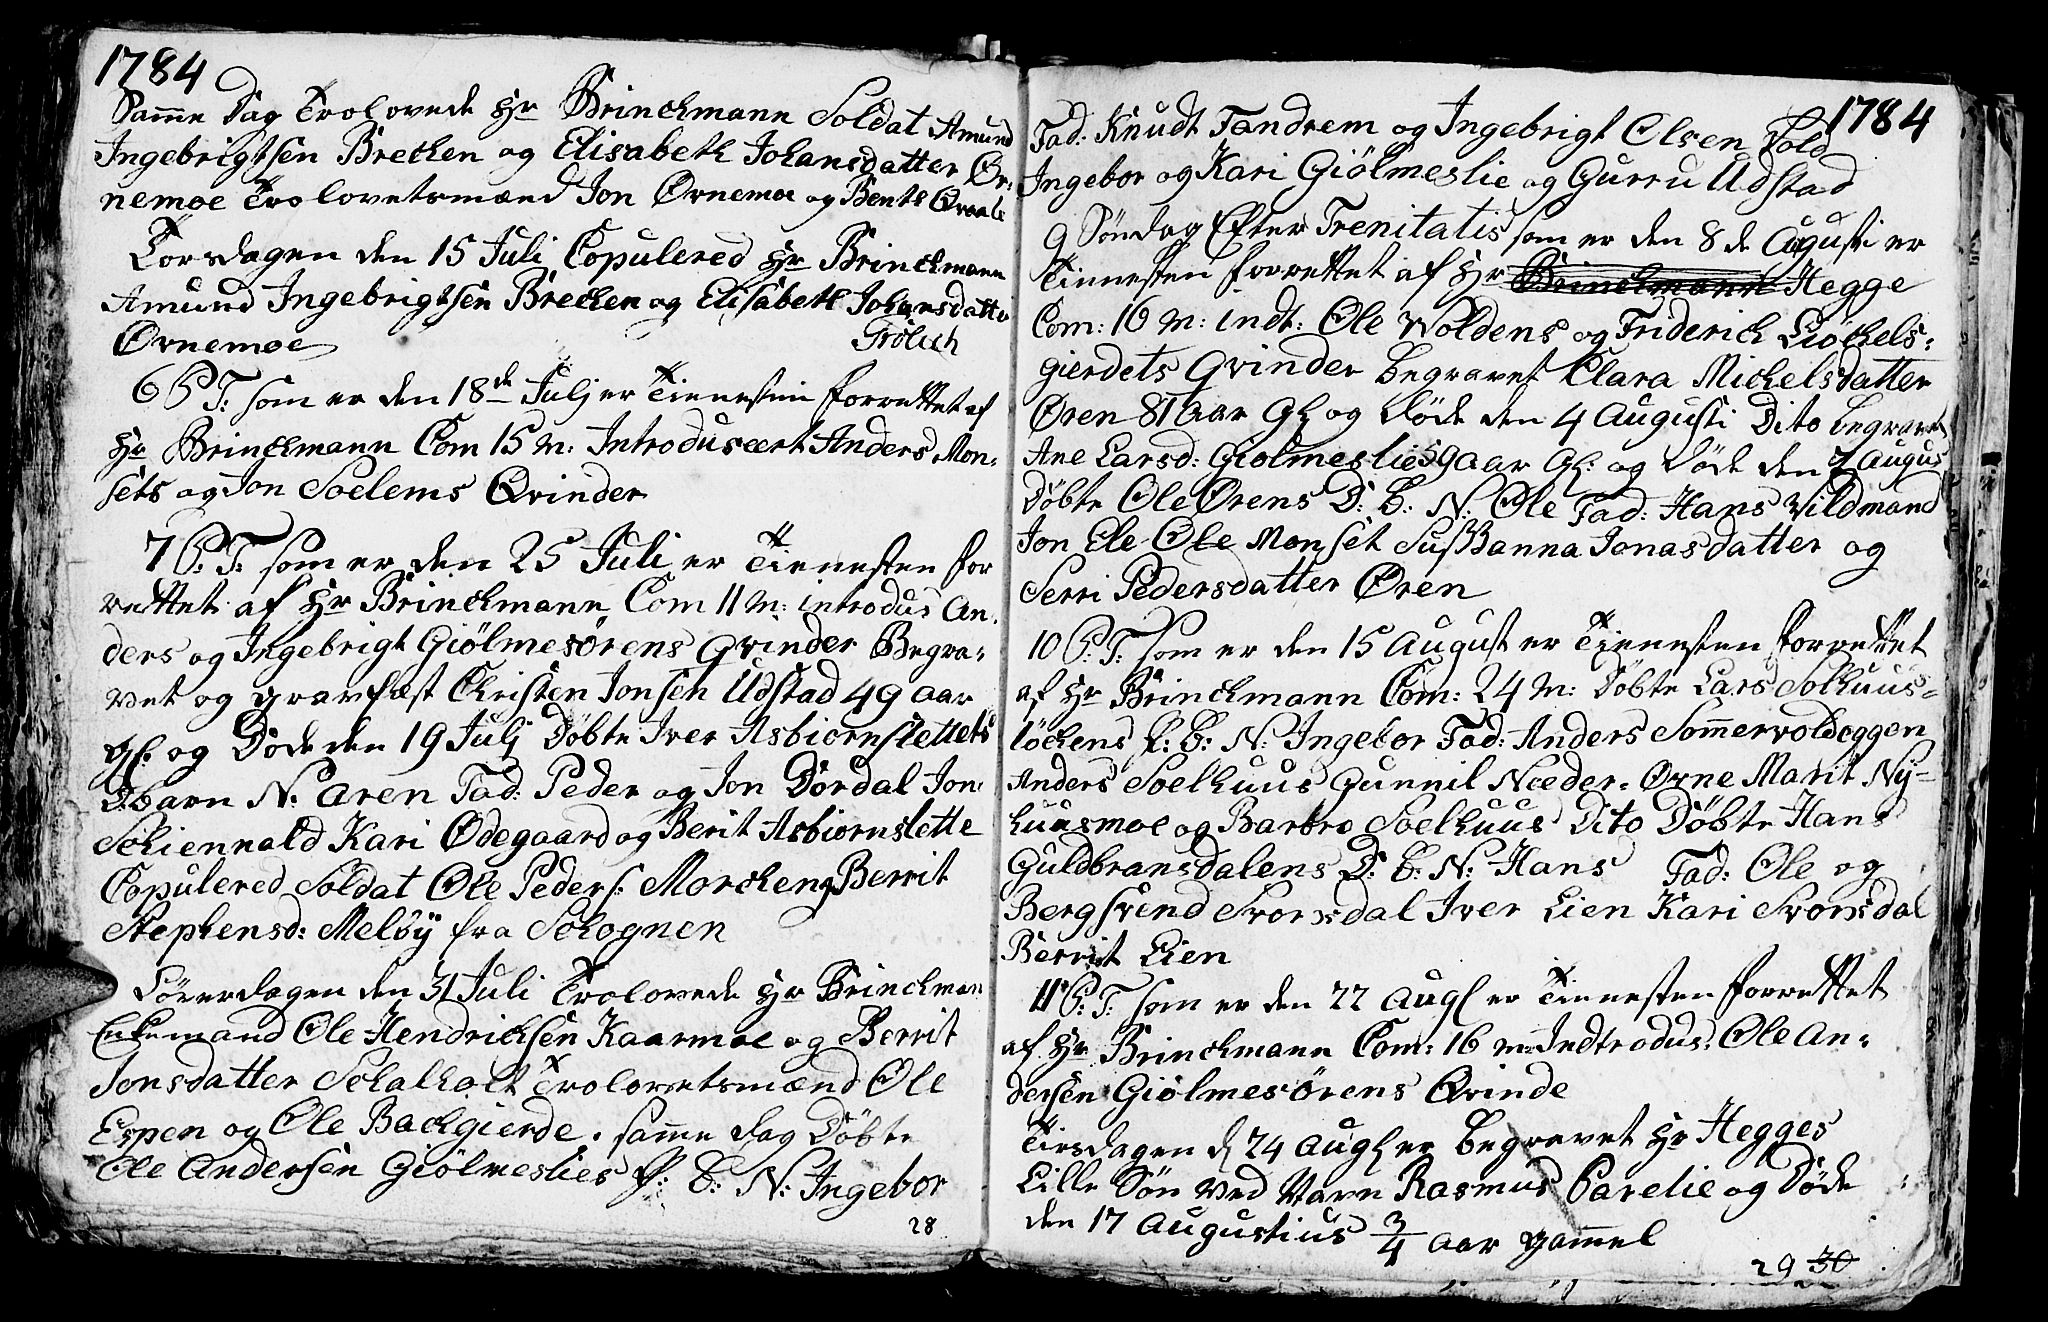 1784
Samme Dag Trolovede Hr Brinchmann Soldat Amund
Ingebrigtsen Brechen og Elisabeth Johansdatter Ør-
nemoe Trolovetsmænd Jon Ørnemoe og Bent
Torsdagen den 15 Juli Copulered Hr Brinchmann
Amund Ingebrigtsen Brechen og Elisabeth Johansdatter
Ørnemoe Frölich
6 S T: som er den 18de Julj er Tienesten forrettet af
Hr Brinchmann Com 15 M: Introduscert Anders Mon-
sets og Jon Soelems Qvinder
7 S: T: som er den 25 Juli er Tienesten for
rettet af Hr Brinchmann Com 11 M: introdus An-
ders og Ingebrigt Giölmesörens qvinder Begra-
vet og gravfæst Christen Jonsen Udstad 49 aar
gl: og Döde den 19 Julj Döbte Iver Asbiörnslettets
D barn N: Aren Fad: Peder og Jon Dördal Jon
Schiennald Kari Ødegaard og Berit Asbiornslette
Copulered Soldat Ole Peders: Morchen og Berrit
Stephensd: Melbÿ fra Schognen
Löverdagen den 31 Juli Trolovede Hr Brinchman
Enkemand Ole Hendrichsen Kaarmoe og Berrit
Jonsdatter Schalholt Trolovetsmænd Ole
Espen og Ole Bachgierde. samme dag Döbte
Ole Andersen Giölmeslies P: B: N: Ingebor
28
1784
Fad: Knudt Tandrem og Ingebrigt Olsen Sold
Ingebor og Kari Giölmeslie og Gurru Udstad
9 Söndag Efter Trenitatis som er den 8de Agusti er
Tinnesten forrettet af Hr Brinchmann Hegge
Com: 16 M: indt: Ole Woldens og Friderich Liöchels-
gierdets Qvinder begravet Clara Michelsdatter
Øren 81 aar Gl og Döde den 4 Augusti Dito begravet
Ane Larsd: Giölmeslie 59 aar Gl: og Döde den 7 Augus
Döbte Ole Ørens D: B: N: Ole Fad: Hans Vildmand
Jon Ele Ole Monset Sussanna Jonasdatter og
Serri Pedersdatter Øren
10 S: T: som er den 15 August er Tienesten forrettet
af Hr Brinchmann Com: 24 M: Döbte Lars Solhuus-
löchens P: B: N: Ingebor Fad: Anders Sommervoldeggen
Anders Soelhuus Gunnil Needer-Ørne Marit Nÿ-
huusmoe og Barbro Soelhuus Dito Döbte Hans
Guldbransdalens D: B: N: Hans Fad: Ole og
Bergsvend Svorsdal Iver Lien Kari Svorsdal
Berrit Lien
11 S: T: som er den 22 Augl er Tienesten forrettet
af Hr Brinchmann Com: 16 M: Indtrodus: Ole An-
dersen Giölmesörens Qvinde
Tirsdagen d 24 Augl er begravet Hr Hegges
Lille Sön ved Navn Rasmus Parelie og Döde
den 17 Augustius 3/4 aar gammel
29 30